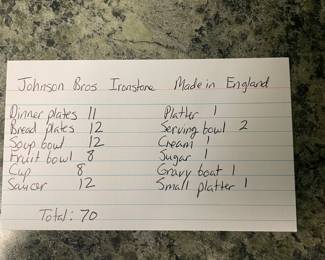 Johnson Bros Ironstone Made in England
Dinner plates 11
Bread plates 12
Soup bowl 12
Fruit bowl 8
Cup 8
Saucer 12
Platter 1
Serving bowl 2
Cream 1
Sugar 1
Gravy boat 1
Small platter 1
Total: 70